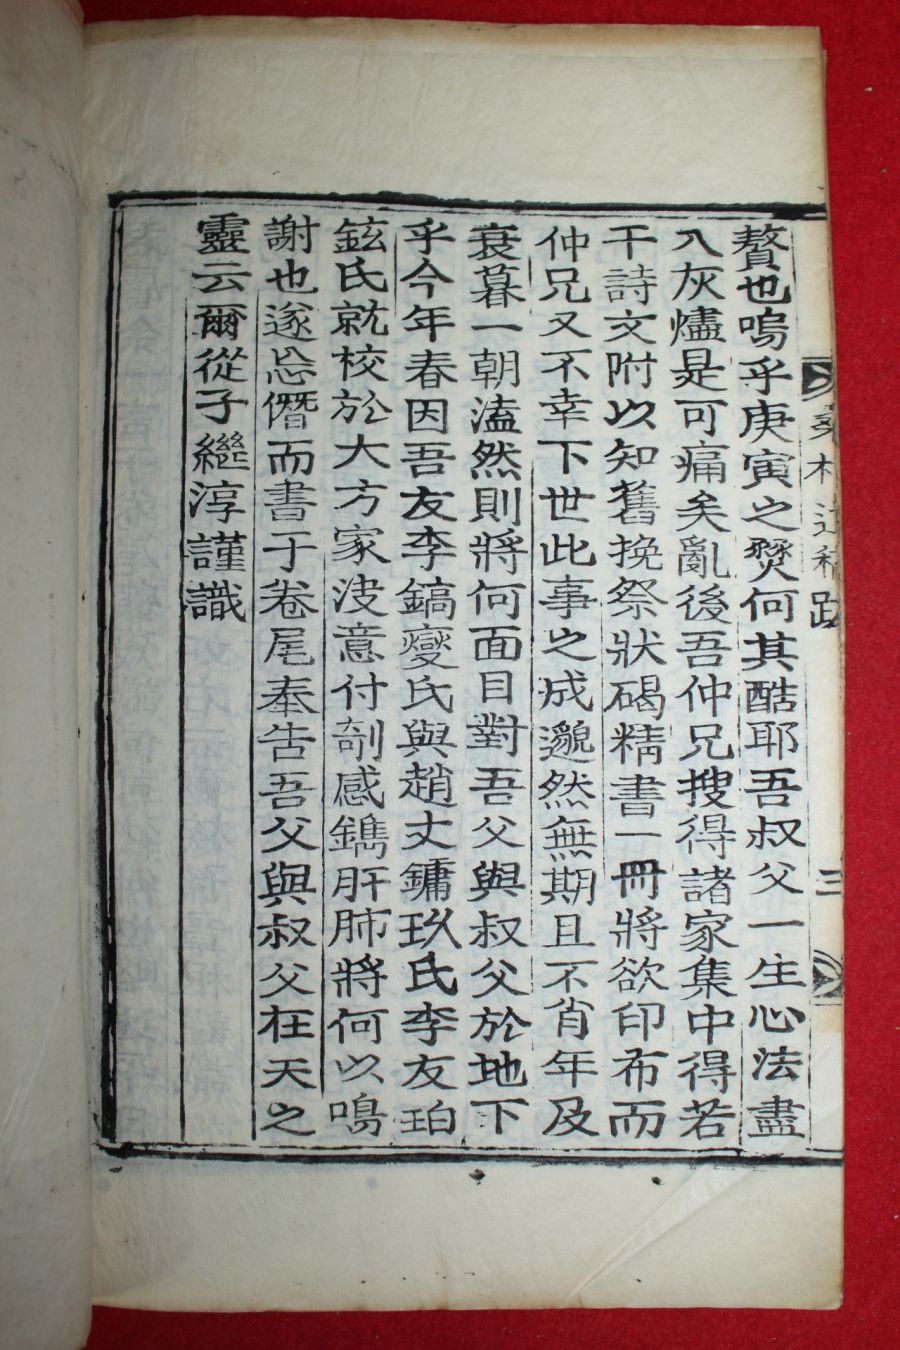 贅也嗚乎庚寅之燹何其酷耶吾叔父一生心法盡
入灰燼是可痛矣亂後吾仲兄搜得諸家集中得若
干詩文附以知舊挽祭狀碣精書一冊將欲印布而
仲兄又不幸下世此事之成邈然無期且不肖年及
衰暮一朝溘然則將何面目對吾父與叔父於地下
乎今年春因吾友李鎬燮氏與趙丈鏞玖氏李友珀
鉉氏就校於大方家決意付剞感鐫肝肺將何以鳴
謝也遂忘僭而書于卷尾奉告吾父與叔父在天之
靈云爾從子繼淳謹識
木遺稿跋 三